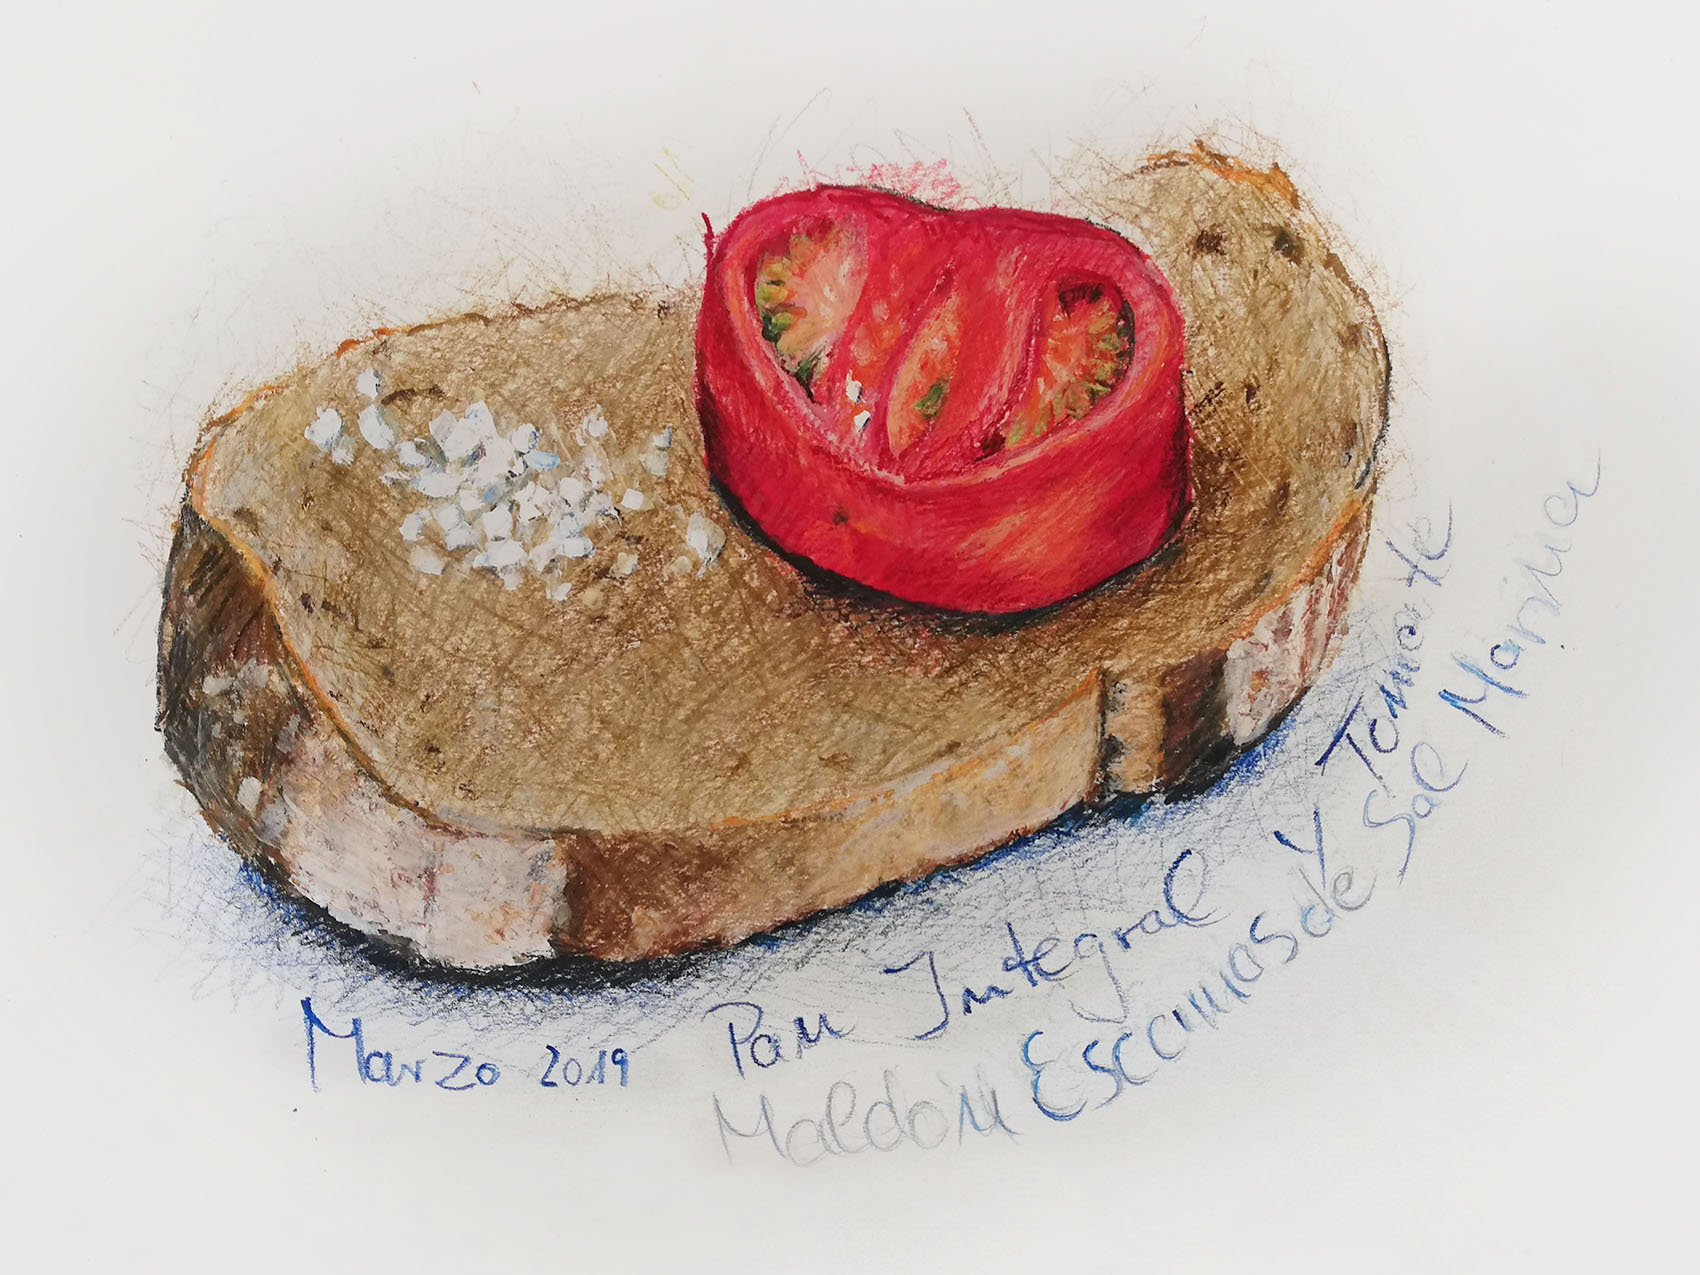 Marzo 2019
Pan Integral y Tomate
Maldon Escamas de Sal Marina